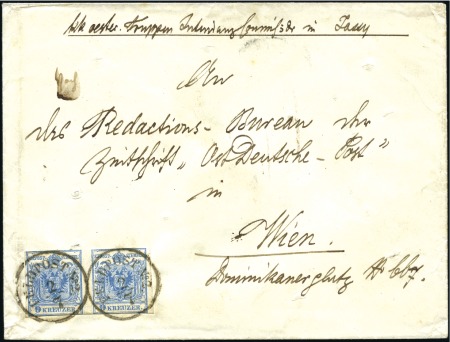 k.k. oester. Truppen Intendanz in Jassy
An
das Redactions-Bureau der
Zeitschrift „Ost Deutsche-Post"
in
Wien.
Dominikanerplatz
9 KREUZER 9 KREUZER